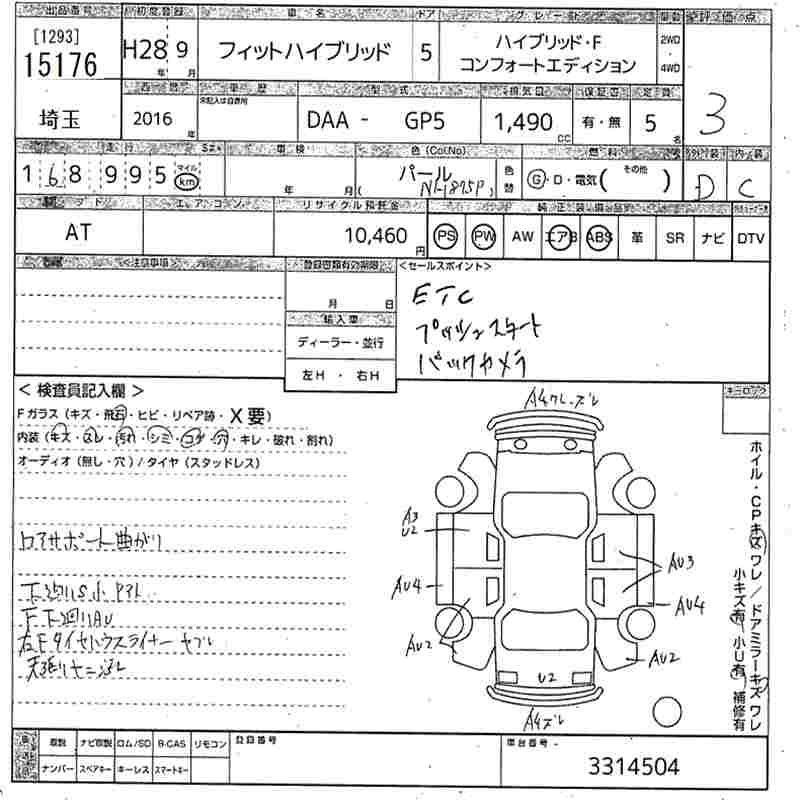 出品番号 初度登録 車名 ドア グレード 駆動 評価点
[1293]
15176 H28 9 年 月 フィットハイブリッド 5 ハイブリッド・F 2WD
コンフォートエディション 4WD
西暦 車歴 型式 排気量 保証書 定員
埼玉 2016 年 未記入は自家用 DAA - GP5 1,490 CC 有・無 5 名 3
走行 車検 色(ColNo) 燃料 外装 内装
168995 マイル km 年 月 パール 色替 G・D・電気( その他 ) D C
(NH-875P)
シフト エアコン リサイクル預託金 純正装備品
AT 10,460 円 PS PW AW エアB ABS 革 SR ナビ DTV
<注意事項> 登録書類有効期限 <セールスポイント>
月 日
ETC
輸入車
プッシュスタート
ディーラー・並行
バックカメラ
左H ・ 右H
< 検査員記入欄 > キーロック
Fガラス (キズ・飛石・ヒビ・リペア跡・X要)
内装 (キズ・スレ・汚れ・シミ・コゲ・穴・キレ・破れ・割れ)
オーディオ (無し・穴) / タイヤ (スタッドレス)
A4ワレ.ズレ
A3
U2
コアサポート曲がり
AU3
AU4
AU4
AU2
AU2
U2
A4ズレ
下廻りS小
F下廻りAU
右Fタイヤハウスライナー ヤブレ
ホイル・CPキズワレ/ドアミラーキズワレ
小キズ有 小U有 補修有
取説 ナビ取説 ロム/SD B-CAS リモコン 登録番号 車台番号
ナンバー スペアキー キーレス スマートキー 3314504